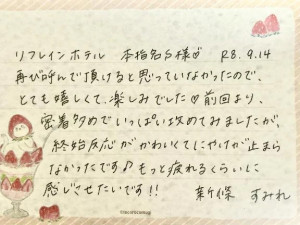 リフレインホテル 本指名S様♡ R8.9.14
再び呼んで頂けると思っていなかったので、
とても嬉しくて、楽しみでした♡前回より、
密着多めでいっぱい攻めてみましたが、
終始反応がかわいくてにやけが止まら
なかったです♪もっと疲れるくらいに
感じさせたいです!!
新條 すみれ